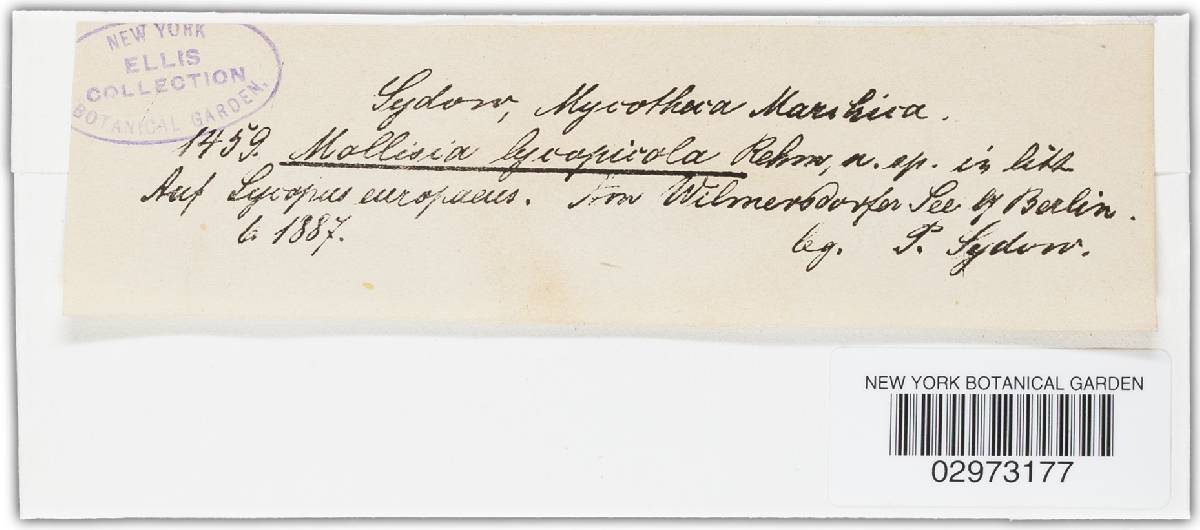 NEW YORK
ELLIS
COLLECTION
BOTANICAL GARDEN.
Sydow, Mycotheca Marchica.
1459. Mollisia lycopicola Rehm, n. sp. in litt
Auf Lycopus europaeus. Am Wilmersdorfer See b/ Berlin.
6. 1887.
leg. P. Sydow.
NEW YORK BOTANICAL GARDEN
02973177